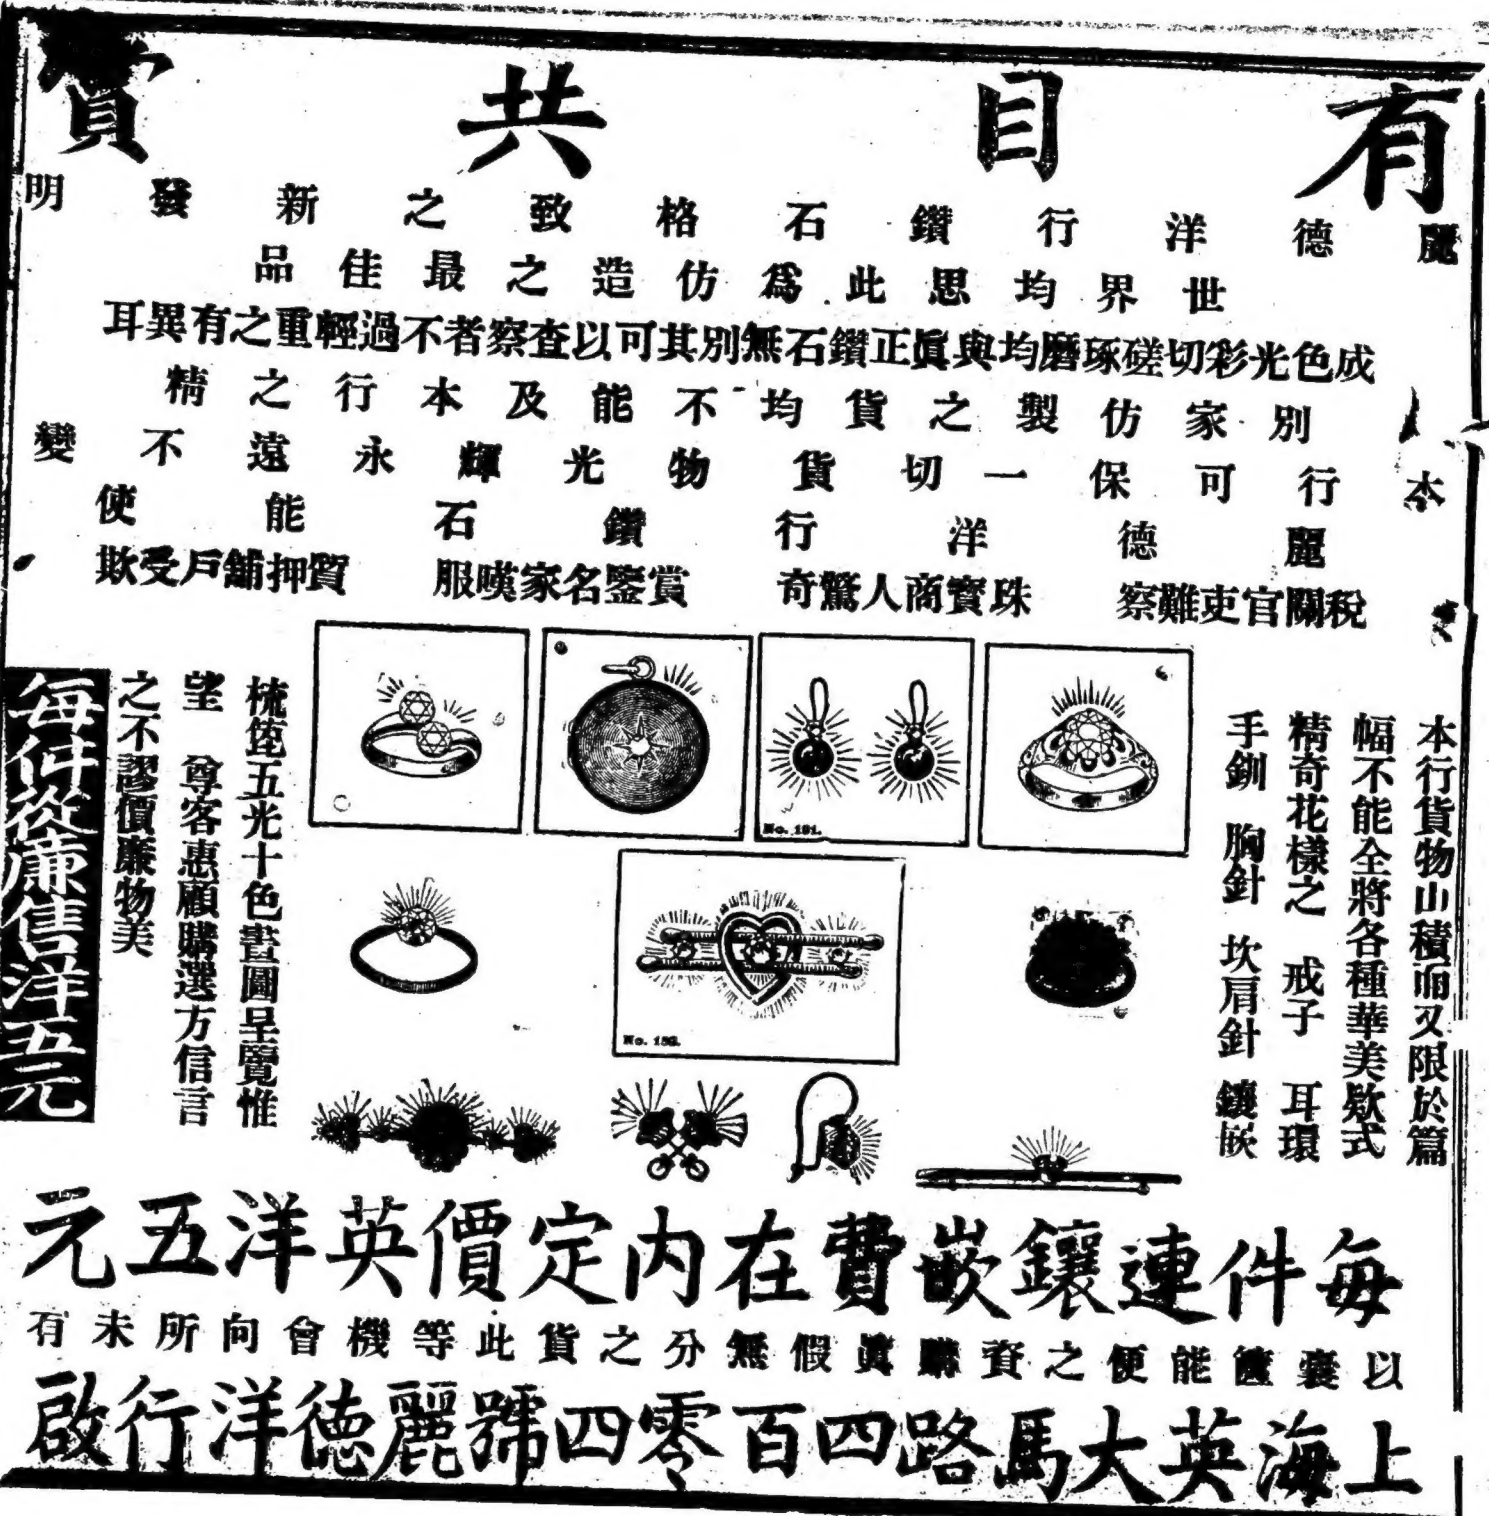 有目共賞
麗德洋行鑽石格致之新發明
世界均思此為仿造之最佳品
成色光彩切磋琢磨均與眞正鑽石無別其可以查察者不過輕重之有異耳
別家仿製之貨均不能及本行之精
本行可保一切貨物光輝永遠不變
麗德洋行鑽石能使
稅關官吏難察 珠寶商人驚奇 賞鑒名家嘆服 質押舖戶受欺
本行貨物山積而又限於篇
幅不能全將各種華美欵式
精奇花樣之 戒子 耳環
手釧 胸針 坎肩針 鑲嵌
No. 191.
No. 189.
梳篦五光十色畫圖呈覽惟
望 尊客惠顧購選方信言
之不謬價廉物美
每件從廉售洋五元
每件連鑲嵌費在內定價英洋五元
以囊篋能便之資購眞假無分之貨此等機會向所未有
上海英大馬路四百零四號麗德洋行啟